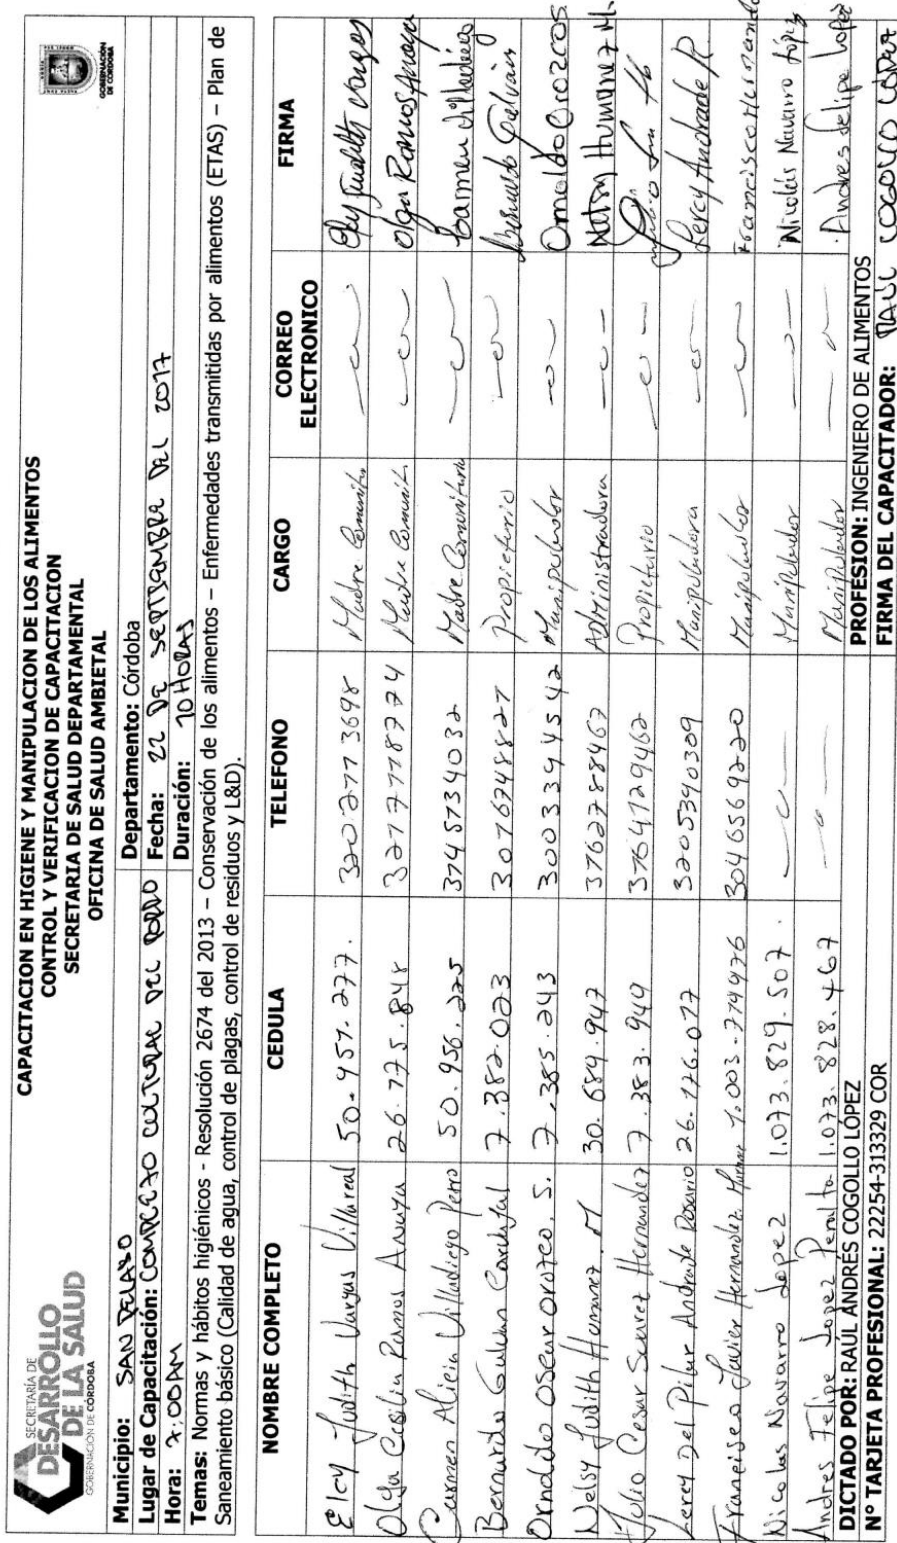 SECRETARÍA DE
DESARROLLO
DE LA SALUD
GOBERNACIÓN DE CÓRDOBA
CAPACITACION EN HIGIENE Y MANIPULACION DE LOS ALIMENTOS
CONTROL Y VERIFICACION DE CAPACITACION
SECRETARIA DE SALUD DEPARTAMENTAL
OFICINA DE SALUD AMBIETAL
GOBERNACIÓN DE CÓRDOBA
Municipio: SAN PELAYO Departamento: Córdoba
Lugar de Capacitación: COMPLEJO CULTURAL DEL PORRO Fecha: 22 DE SEPTIEMBRE DEL 2017
Hora: 7:00AM Duración: 10 HORAS
Temas: Normas y hábitos higiénicos - Resolución 2674 del 2013 – Conservación de los alimentos – Enfermedades transmitidas por alimentos (ETAS) – Plan de
Saneamiento básico (Calidad de agua, control de plagas, control de residuos y L&D).
NOMBRE COMPLETO CEDULA TELEFONO CARGO CORREO ELECTRONICO FIRMA
Elcy Judith Vargas Villareal 50.957.277. 3202773698 Madre Comunita Elcy Judith Vargas
Olga Cecilia Ramos Anaya 26.775.848 3277778774 Madre Comunit Olga Ramos Anaya
Carmen Alicia Villadiego Perro 50.956.225 3745734032 Madre Comunitaria Carmen Villadiego
Bernardo Galvan Carvajal 7.382.023 3076748827 Propietario Bernardo Galvain
Ornaldo Oscar Orozco. S. 7.385.243 3003394542 Manipulador Ornaldo Orozco S.
Nelsy Judith Humanez. M 30.689.947 3762788467 Administradora Nelsy Humanez M.
Julio Cesar Suarez Hernandez 7.383.949 3764729462 Propietario
Lercy Del Pilar Andrade Rosario 26.176.077 3205340309 Manipuladora Lercy Andrade R
Francisco Javier Hernandez 1.003.714476 3046569220 Manipulador Francisco Hernandez
Nicolas Navarro Lopez 1.073.829.507. Manipulador Nicolás Navarro López
Andres Felipe Lopez Peralta 1.073.828.467 Manipulador Andres Felipe Lopez
DICTADO POR: RAÚL ANDRÉS COGOLLO LÓPEZ PROFESION: INGENIERO DE ALIMENTOS
N° TARJETA PROFESIONAL: 22254-313329 COR FIRMA DEL CAPACITADOR: RAÚL COGOLLO LÓPEZ